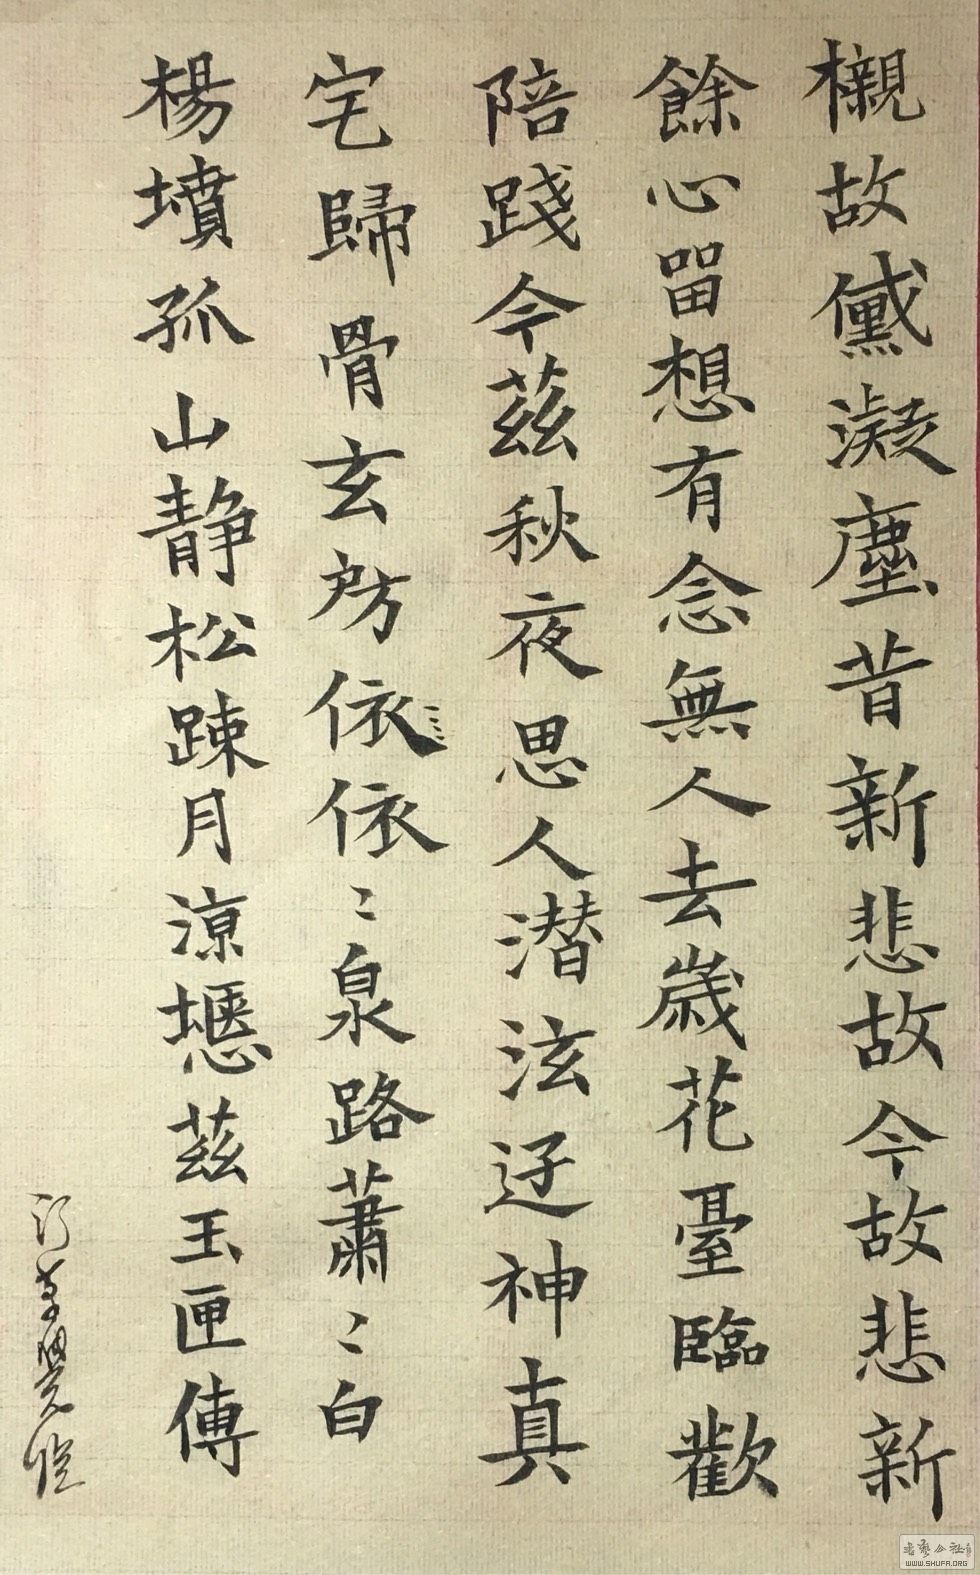 櫬故黛凝塵昔新悲故今故悲新
餘心留想有念無人去歲花臺臨歡
陪踐今茲秋夜思人潛泫迂神真
宅歸骨玄房依依〻泉路蕭〻白
楊墳孤山静松踈月涼慝茲玉匣傳
書艺公社
WWW.SHUFA.ORG